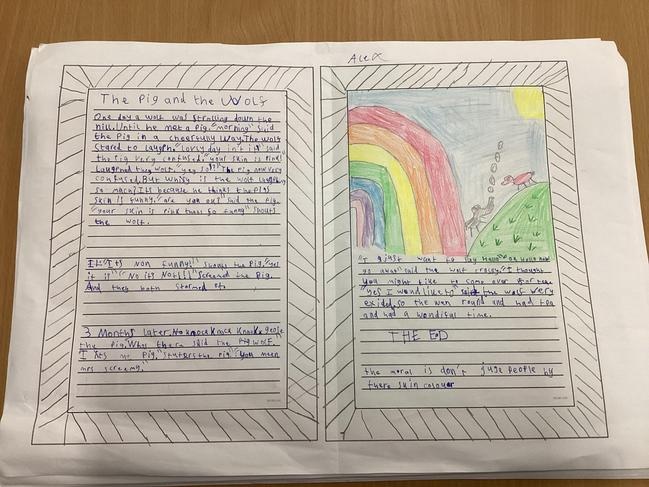 Alex
The Pig and the Wolf
One day a wolf was strolling down the
hill. Until he met a pig. "morning" said
the pig in a cheerfully way. The wolf
stared to laugh. "lovly day in't it" said
the pig very confused. "your skin is pink"
Laughed the wolf. "yes so?" The pig now very
confused. But why is the wolf laughing
so much? It's because he thinks the pigs
skin is funny. "are you ok?" said the pig.
"your skin is pink thats so funny" shouts
the wolf.
It's non funny!" shouts the pig. "yes
it it" "No its Not!!!" screamed the pig.
And they both stormed of.
3 Months Later. No knock knock knocks
the pig. Whos there said the wolf.
I its me pig." stuters the pig. "you meen
mrs screamy."
"I just want to say Hallo" "ok your now
go away" said the wolf crossly. "I thought
you might like to come over for tea
"yes I woud like to" said the wolf very
exided. so the wen round and had tea
and had a wondiful time.
THE ED
the moral is don't juge people by
there skin colour